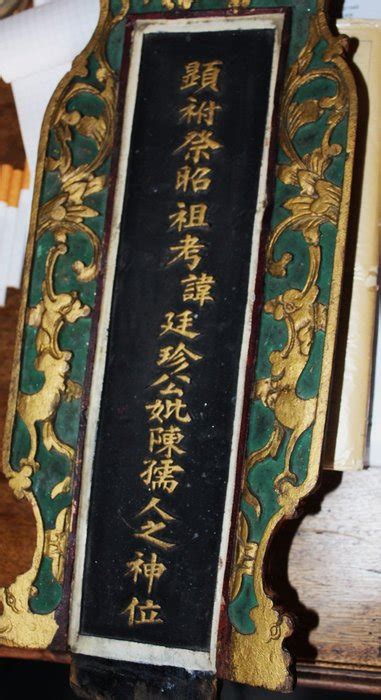 顯祔祭昭祖考諱廷珍公妣陳孺人之神位